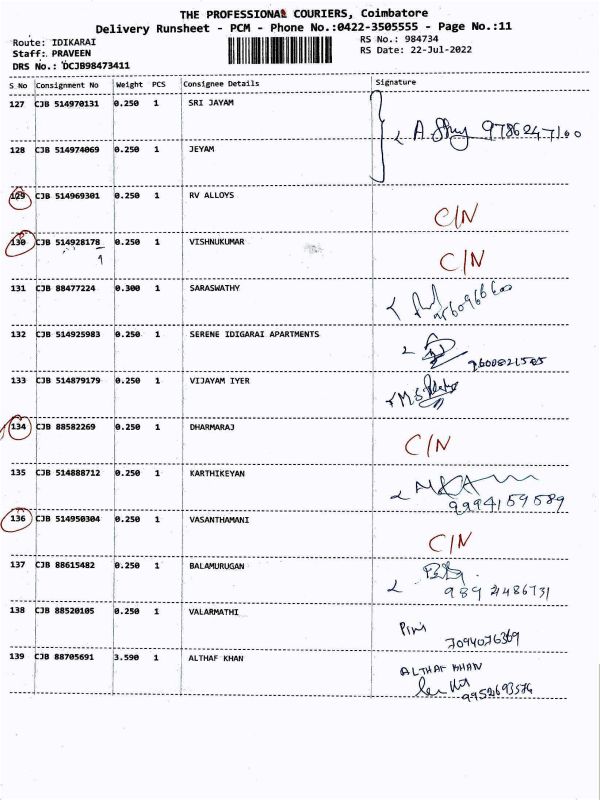 THE PROFESSIONAL COURIERS, Coimbatore
Delivery Runsheet - PCM - Phone No.:0422-3505555 - Page No.:11
Route: IDIKARAI
Staff: PRAVEEN
DRS No.: DCJB98473411
RS No.: 984734
RS Date: 22-Jul-2022
S No Consignment No Weight PCS Consignee Details Signature
127 CJB 514970131 0.250 1 SRI JAYAM
A. 9786247100
128 CJB 514974069 0.250 1 JEYAM
129 CJB 514969301 0.250 1 RV ALLOYS
C/N
130 CJB 514928178 0.250 1 VISHNUKUMAR
9
C/N
131 CJB 88477224 0.300 1 SARASWATHY
132 CJB 514925983 0.250 1 SERENE IDIGARAI APARTMENTS
133 CJB 514879179 0.250 1 VIJAYAM IYER
134 CJB 88582269 0.250 1 DHARMARAJ
C/N
135 CJB 514888712 0.250 1 KARTHIKEYAN
9994159589
136 CJB 514950304 0.250 1 VASANTHAMANI
C/N
137 CJB 88615482 0.250 1 BALAMURUGAN
138 CJB 88520105 0.250 1 VALARMATHI
7094076369
139 CJB 88705691 3.590 1 ALTHAF KHAN
ALTHAF KHAN
9952693576